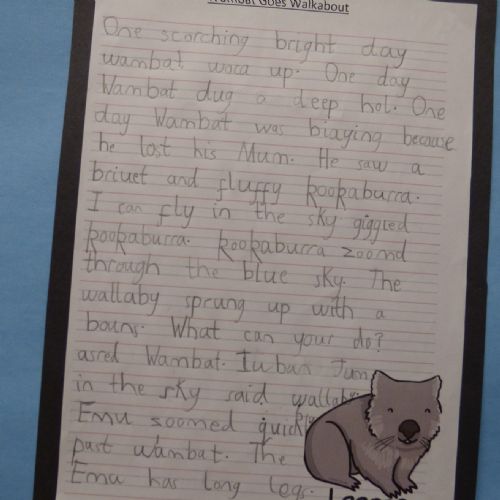 Wombat Goes Walkabout
One scorching bright day
wambat waca up. One day
Wambat dug a deep hol. One
day Wambat was biaging because
he lost his Mum. He saw a
briuet and fluffy kookaburra.
I can fly in the sky giggled
kookaburra. kookaburra zoomd
through the blue sky. The
wallaby sprung up with a
bouns. What can your do?
asred Wambat. Jum
in the sky said wallaby
Emu soomed quick
past wambat. The
Emu has long legs.